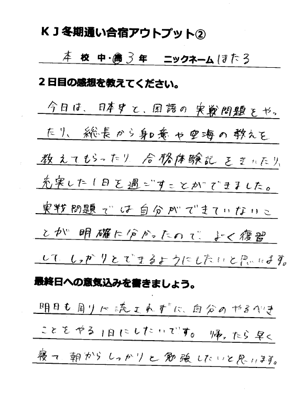 KJ冬期通い合宿アウトプット②
本 校 中・高 3 年 ニックネーム はたる
2日目の感想を教えてください。
今日は、日本史と、国語の実戦問題をやっ
たり、総長から真言や空海の教えを
教えてもらったり 合格体験記をきいたり、
充実した1日を過ごすことができました。
実戦問題では自分ができていないこ
とが明確に分かったので、よく復習
して しっかりとできるようにしたいと思います。
最終日への意気込みを書きましょう。
明日も周りに流されずに、自分のやるべき
ことをやる1日にしたいです。 帰ったら早く
寝て 朝からしっかりと勉強したいと思います。